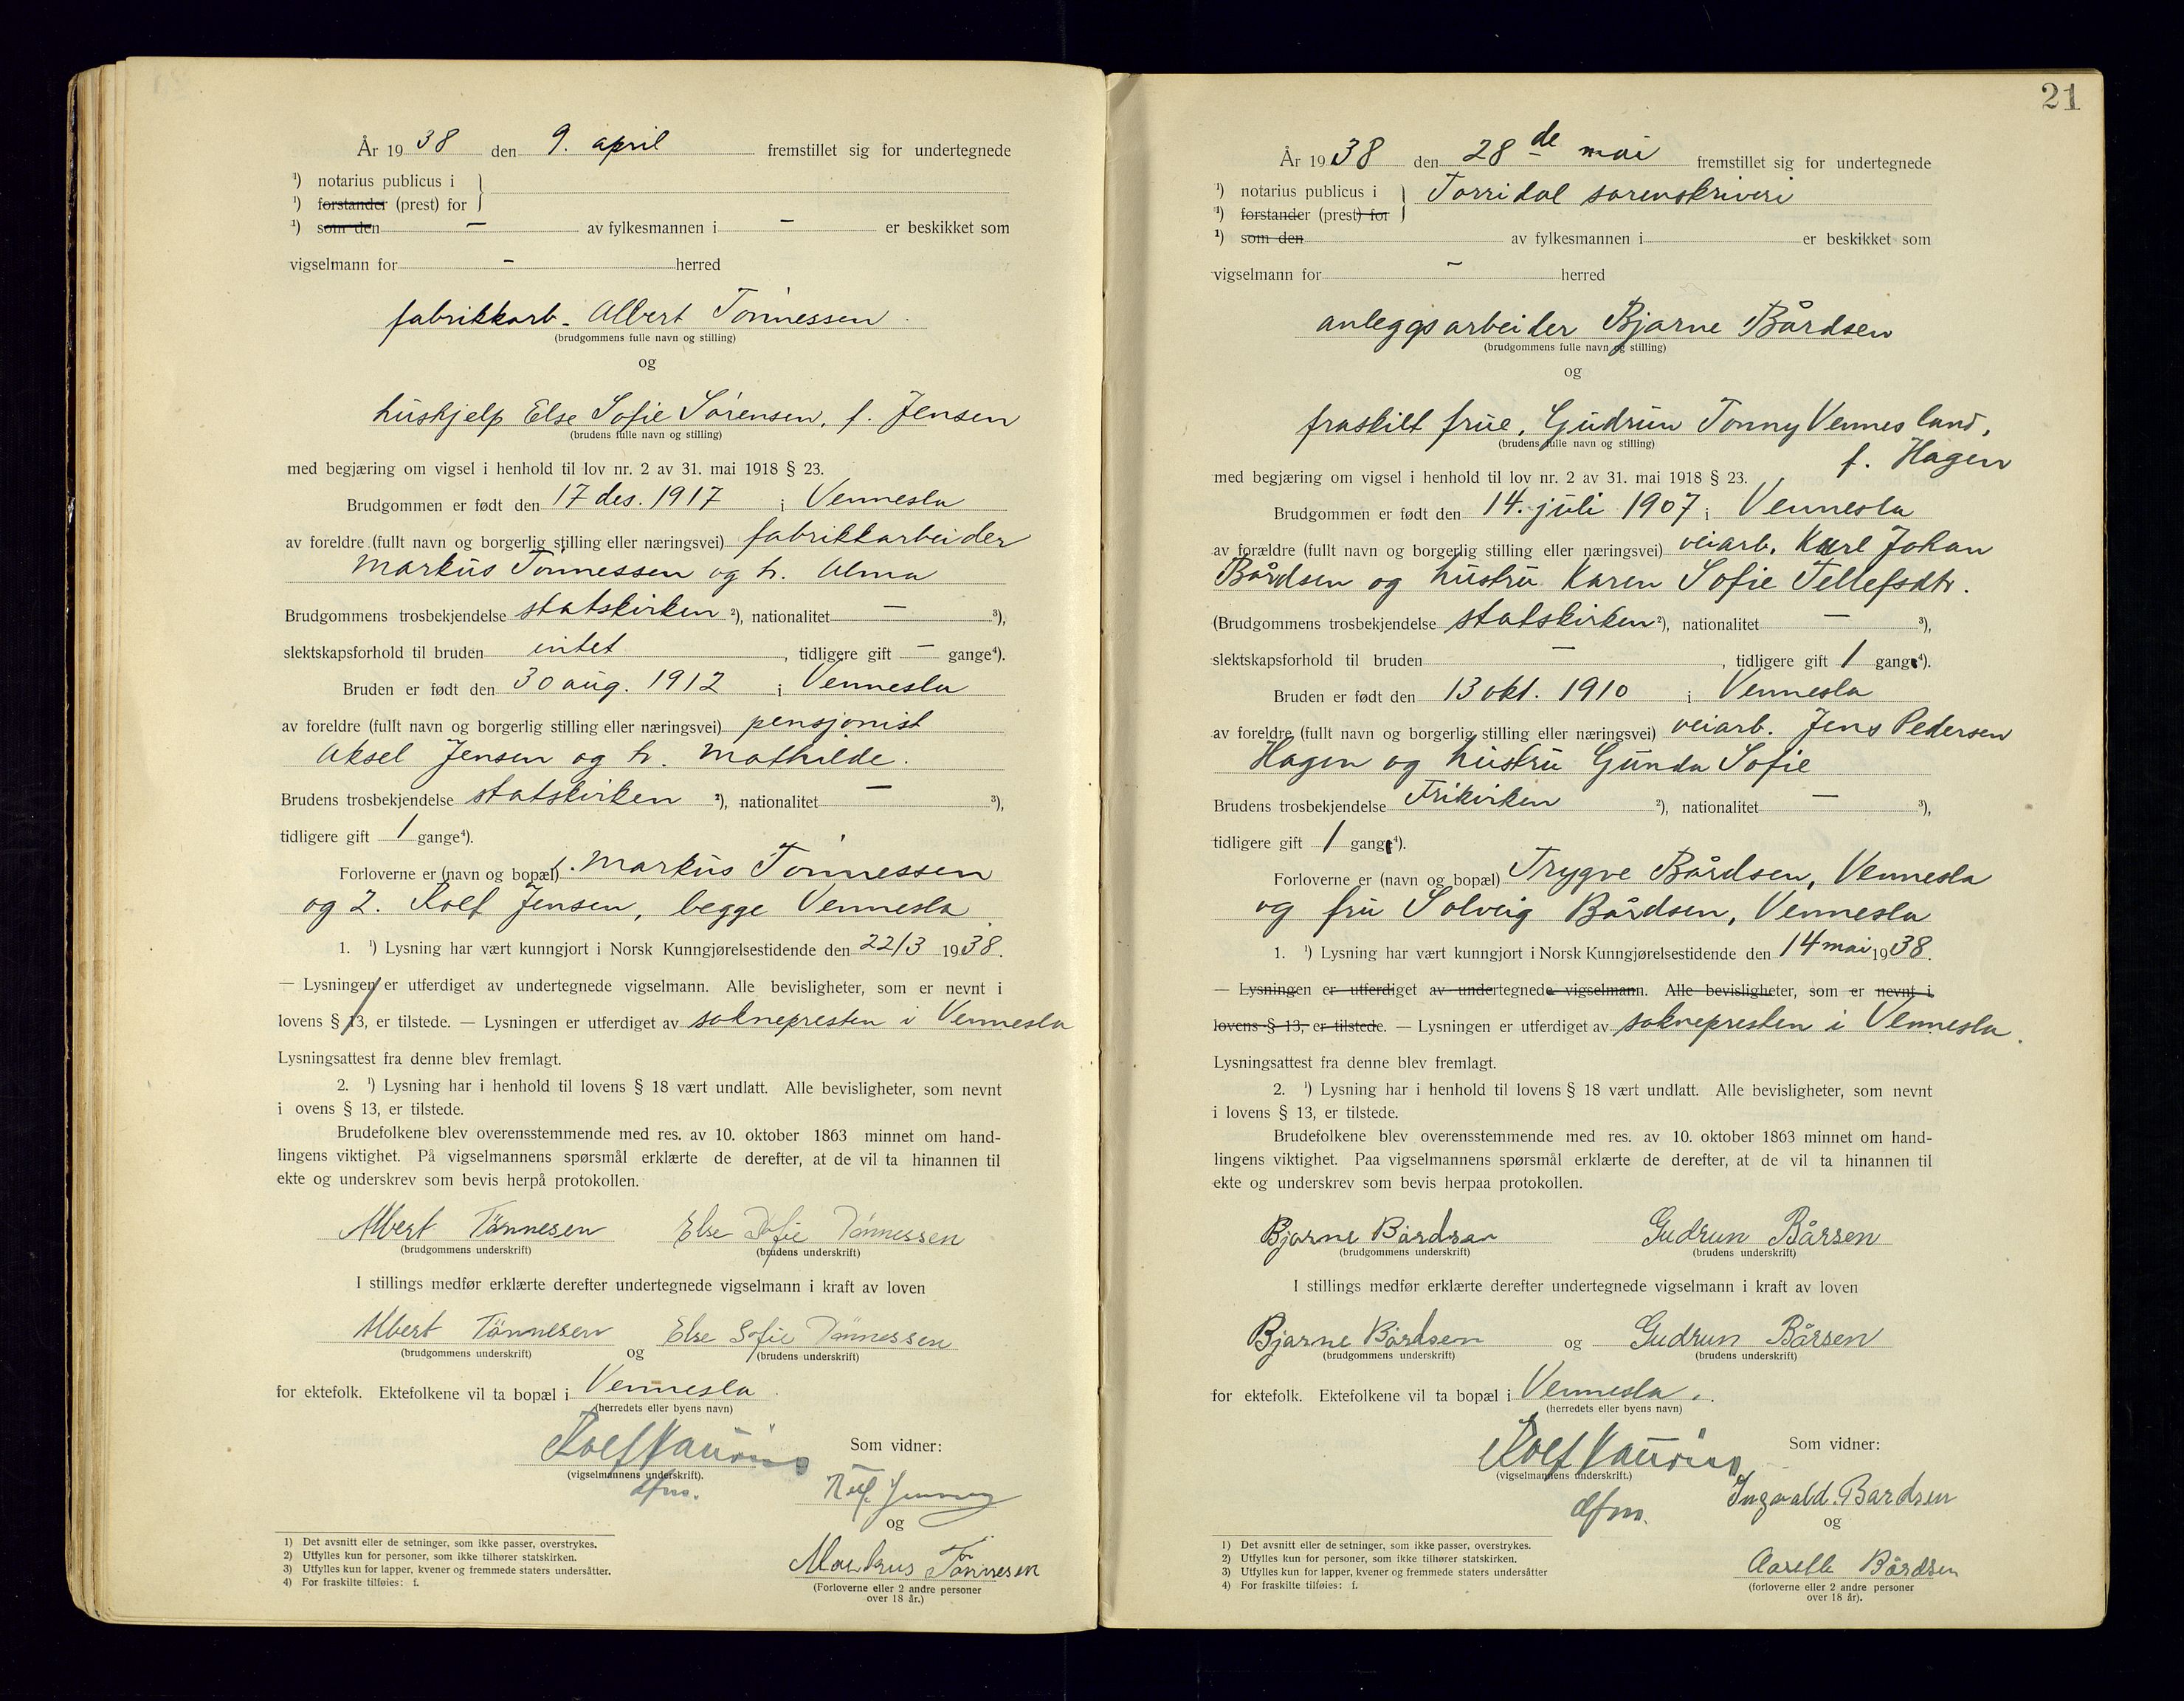 År 1938 den 9. april fremstillet sig for undertegnede
¹) notarius publicus i
¹) forstander (prest) for
¹) som den - av fylkesmannen i - er beskikket som
vigselmann for - herred
fabrikkarb. Albert Tönnessen
(brudgommens fulle navn og stilling)
og
hushjelp Else Sofie Sörensen, f. Jensen
(brudens fulle navn og stilling)
med begjæring om vigsel i henhold til lov nr. 2 av 31. mai 1918 § 23.
Brudgommen er født den 17 des. 1917 i Vennesla
av foreldre (fullt navn og borgerlig stilling eller næringsvei) fabrikkarbeider
Markus Tönnessen og h. Alma
Brudgommens trosbekjendelse statskirken ²), nationalitet — ³),
slektskapsforhold til bruden intet, tidligere gift — gange⁴).
Bruden er født den 30 aug. 1912 i Vennesla
av foreldre (fullt navn og borgerlig stilling eller næringsvei) pensjonist
Aksel Jensen og h. Mathilde.
Brudens trosbekjendelse statskirken ²), nationalitet — ³),
tidligere gift 1 gange⁴).
Forloverne er (navn og bopæl) 1. Markus Tönnessen
og 2. Rolf Jensen, begge Vennesla
1. ¹) Lysning har vært kunngjort i Norsk Kunngjørelsestidende den 22/3 1938.
— Lysningen er utferdiget av undertegnede vigselmann. Alle bevisligheter, som er nevnt i
lovens § 13, er tilstede. — Lysningen er utferdiget av soknepresten i Vennesla
Lysningsattest fra denne blev fremlagt.
2. ¹) Lysning har i henhold til lovens § 18 vært undlatt. Alle bevisligheter, som nevnt
i ovens § 13, er tilstede.
Brudefolkene blev overensstemmende med res. av 10. oktober 1863 minnet om hand-
lingens viktighet. På vigselmannens spørsmål erklærte de derefter, at de vil ta hinannen til
ekte og underskrev som bevis herpå protokollen.
Albert Tönnesen Else Sofie Tönnessen
(brudgommens underskrift) (brudens underskrift)
I stillings medfør erklærte derefter undertegnede vigselmann i kraft av loven
Albert Tönnesen og Else Sofie Tönnessen
(brudgommens underskrift) (brudens underskrift)
for ektefolk. Ektefolkene vil ta bopæl i Vennesla.
(herredets eller byens navn)
Rolf
(vigselmannens underskrift).
dfm.
Som vidner:
og
Markus Tönnesen
(Forloverne eller 2 andre personer
over 18 år.)
1) Det avsnitt eller de setninger, som ikke passer, overstrykes.
2) Utfylles kun for personer, som ikke tilhører statskirken.
3) Utfylles kun for lapper, kvener og fremmede staters undersåtter.
4) For fraskilte tilføies: f.
21
År 1938 den 28de mai fremstillet sig for undertegnede
¹) notarius publicus i Torridal sorenskriveri
¹) forstander (prest) for
¹) som den av fylkesmannen i er beskikket som
vigselmann for - herred
anleggsarbeider Bjarne Bårdsen
(brudgommens fulle navn og stilling)
og
fraskilt frue, Gudrun Tonny Vennesland,
(brudens fulle navn og stilling)
f. Hagen
med begjæring om vigsel i henhold til lov nr. 2 av 31. mai 1918 § 23.
Brudgommen er født den 14. juli 1907 i Vennesla
av forældre (fullt navn og borgerlig stilling eller næringsvei) veiarb. Karl Johan
Bårdsen og hustru Karen Sofie Tellefsdtr.
(Brudgommens trosbekjendelse statskirken ²), nationalitet — ³),
slektskapsforhold til bruden —, tidligere gift 1 gang⁴).
Bruden er født den 13 okt. 1910 i Vennesla
av foreldre (fullt navn og borgerlig stilling eller næringsvei) veiarb. Jens Pedersen
Hagen og hustru Gunda Sofie
Brudens trosbekjendelse Frikirken ²), nationalitet — ³),
tidligere gift 1 gang⁴).
Forloverne er (navn og bopæl) Trygve Bårdsen, Vennesla
og fru Solveig Bårdsen, Vennesla
1. ¹) Lysning har vært kunngjort i Norsk Kunngjørelsestidende den 14 mai 1938.
— Lysningen er utferdiget av undertegnede vigselmann. Alle bevisligheter, som er nevnt i
lovens § 13, er tilstede. — Lysningen er utferdiget av soknepresten i Vennesla.
Lysningsattest fra denne blev fremlagt.
2. ¹) Lysning har i henhold til lovens § 18 vært undlatt. Alle bevisligheter, som nevnt
i lovens § 13, er tilstede.
Brudefolkene blev overensstemmende med res. av 10. oktober 1863 minnet om hand-
lingens viktighet. Paa vigselmannens spørsmål erklærte de derefter, at de vil ta hinannen til
ekte og underskrev som bevis herpaa protokollen.
Bjarne Bårdsen Gudrun Bårsen
(brudgommens underskrift) (brudens underskrift)
I stillings medfør erklærte derefter undertegnede vigselmann i kraft av loven
Bjarne Bårdsen og Gudrun Bårsen
(brudgommens underskrift) (brudens underskrift)
for ektefolk. Ektefolkene vil ta bopæl i Vennesla.
(herredets eller byens navn)
Rolf
(vigselmannens underskrift.)
dfm.
Som vidner:
Ingvald Bårdsen
og
Bårdsen
(forloverne eller 2 andre personer
over 18 år).
1) Det avsnitt eller de setninger, som ikke passer, overstrykes.
2) Utfylles kun for personer, som ikke tilhører statskirken.
3) Utfylles kun for lapper, kvener og fremmede staters undersåtter
4) For fraskilte tilføies: f.